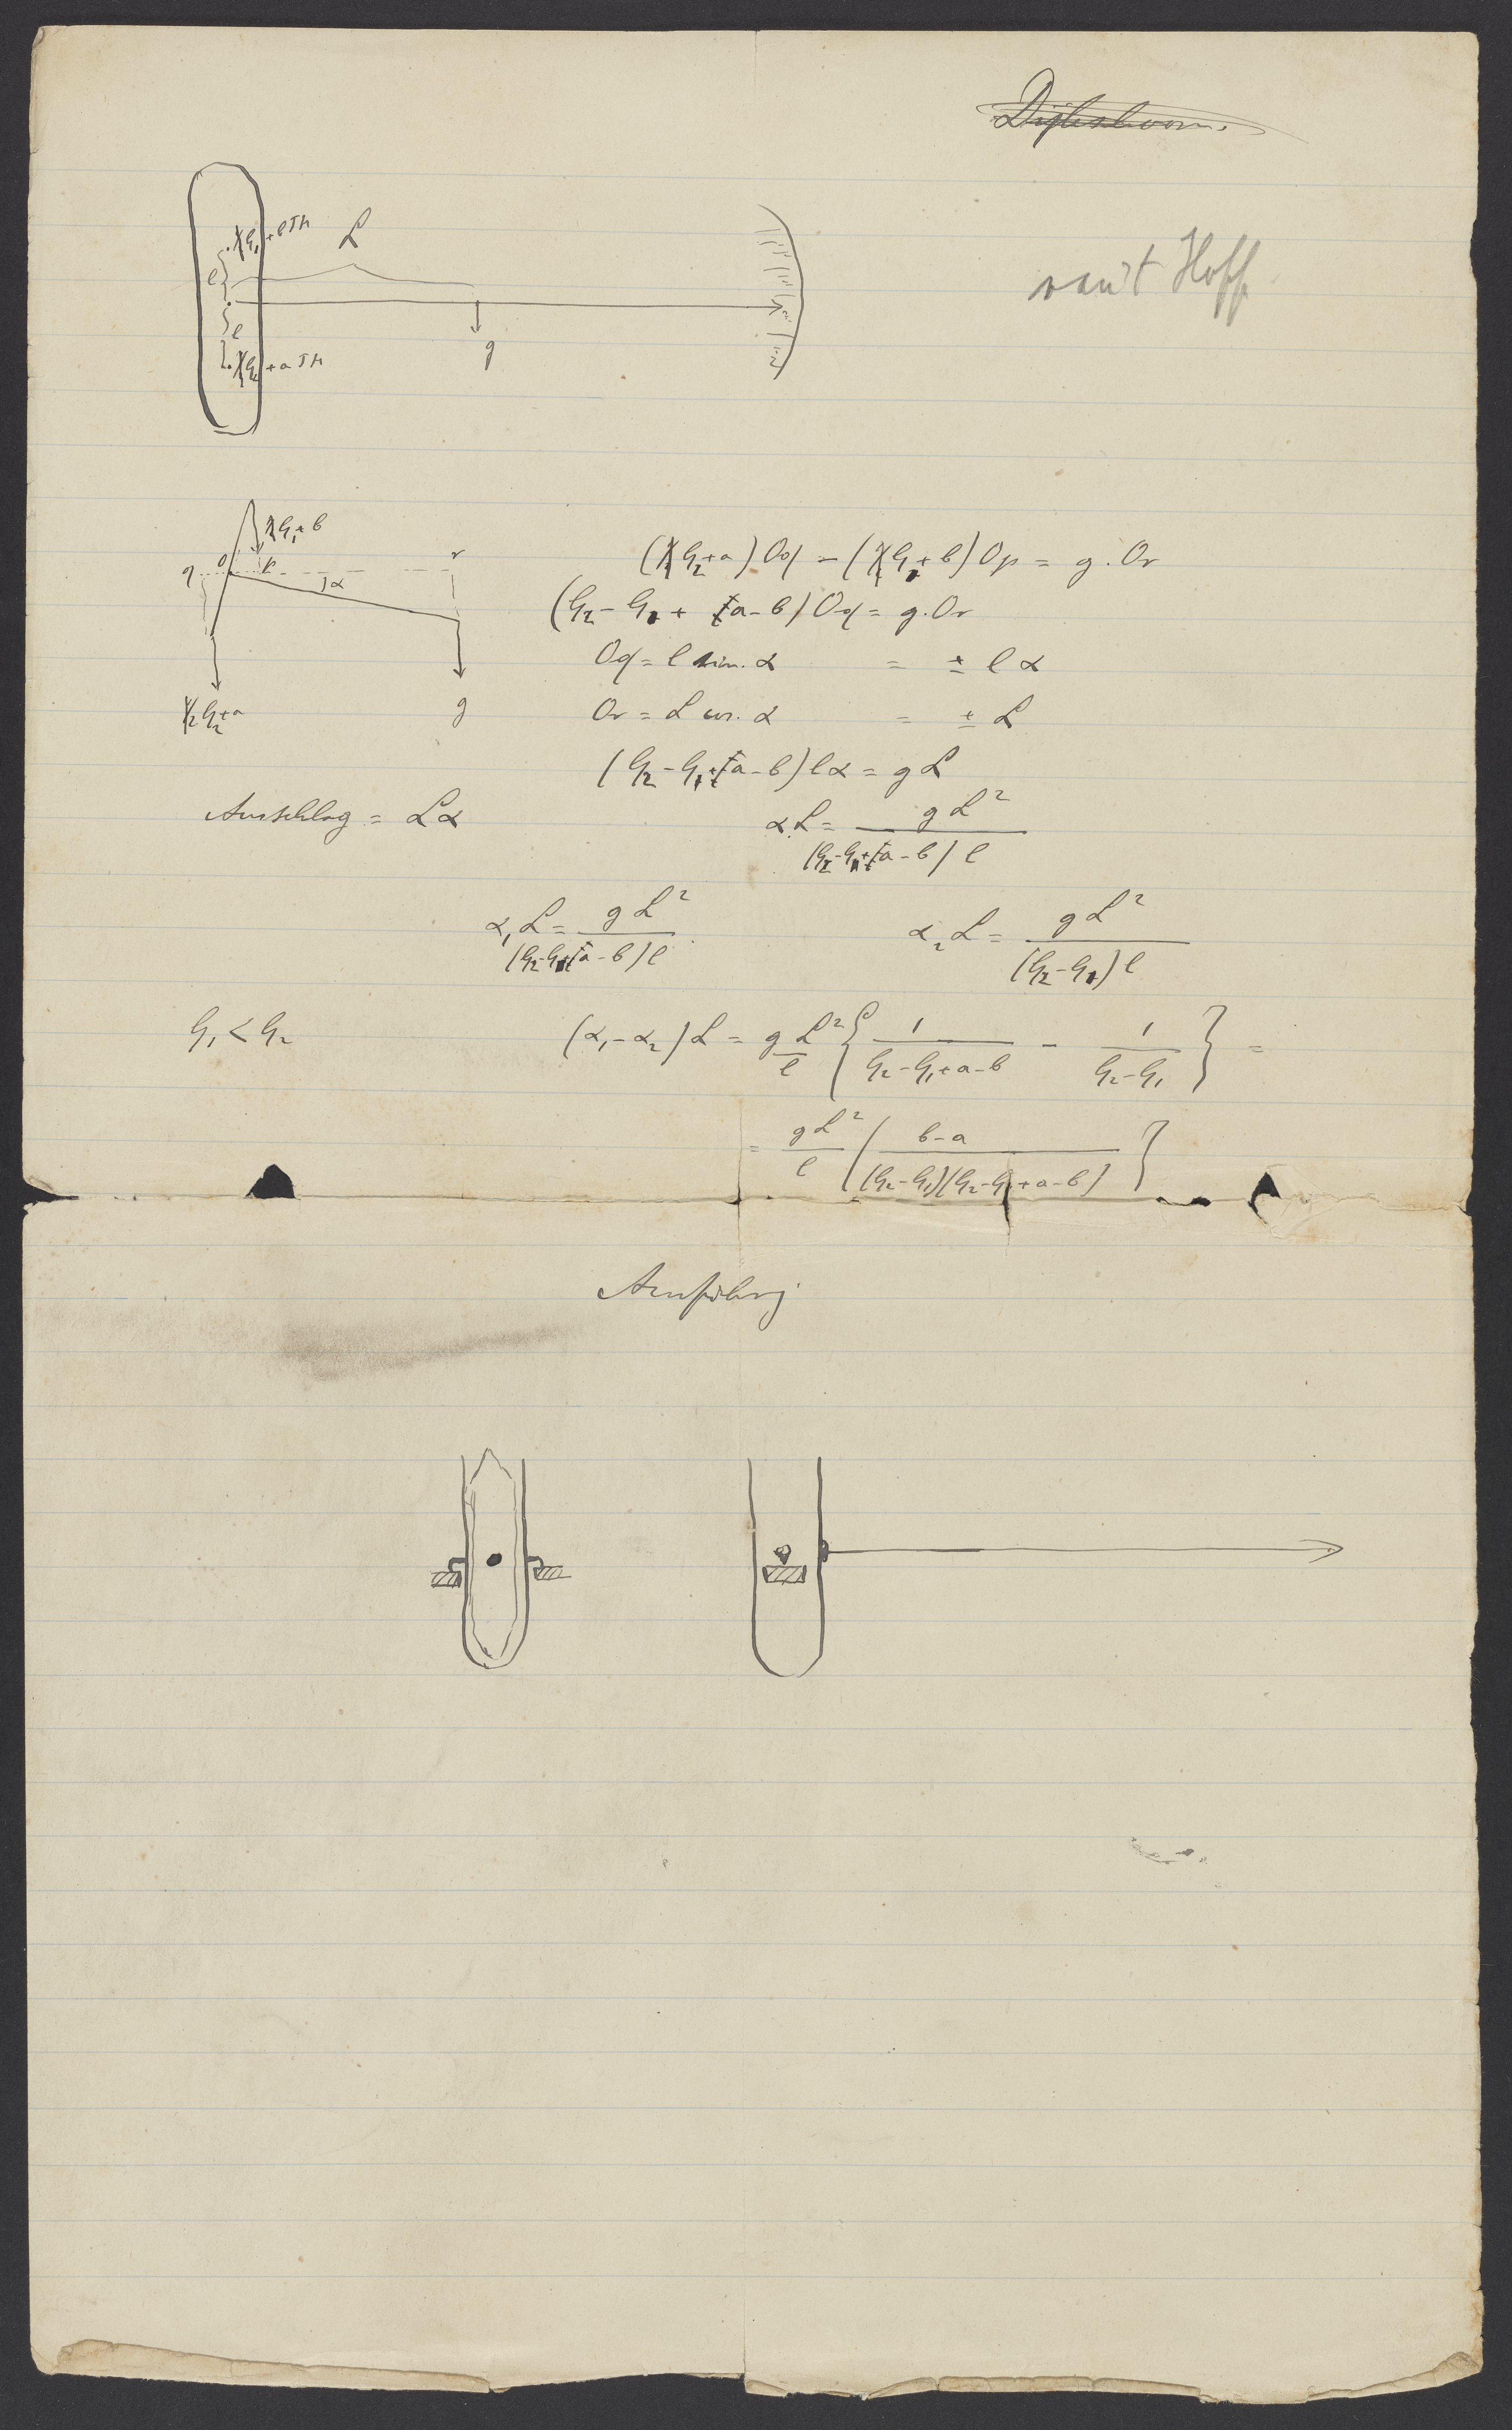 van't Hoff
G₁ + b TM
L
l
l
g
G₂ + a TM
G₁ + b
q O p r
α
G₂ + a
g
(G₂ + a) Oq – (G₁ + b) Op = g. Or
(G₂ – G₁ + a – b) Oq = g. Or
Oq = l sin. α = ± l α
Or = L cos. α = ± L
(G₂ – G₁ + a – b) l α = g L
Ausschlag = L α
α L = g L² / (G₂ – G₁ + a – b) l
α₁ L = g L² / (G₂ – G₁ + a – b) l
α₂ L = g L² / (G₂ – G₁) l
G₁ < G₂
(α₁ – α₂) L = g L² / l { 1 / G₂ – G₁ + a – b – 1 / G₂ – G₁ } =
= g L² / l ( b – a / (G₂ – G₁)(G₂ – G₁ + a – b) }
Ausführg